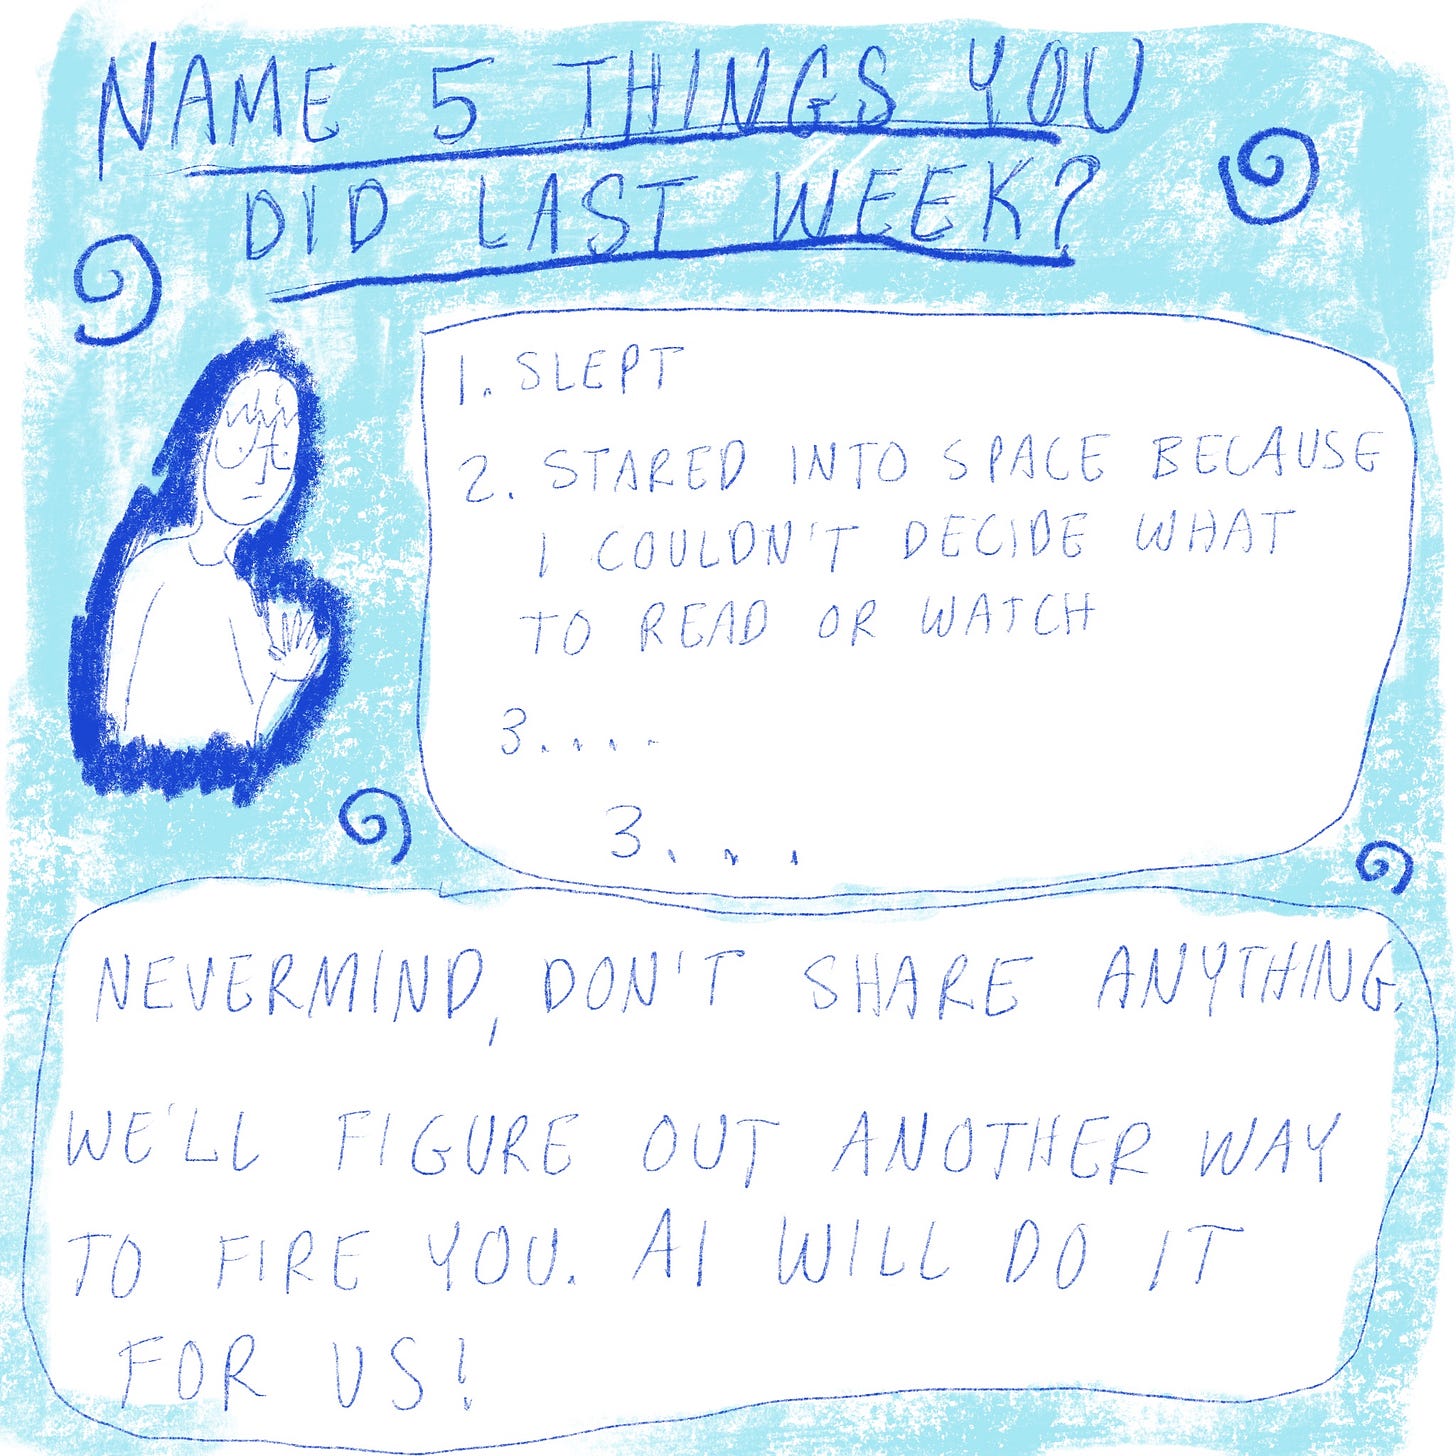 NAME 5 THINGS YOU
DID LAST WEEK?
1. SLEPT
2. STARED INTO SPACE BECAUSE
I COULDN'T DECIDE WHAT
TO READ OR WATCH
3. . . . .
3. . . .
NEVERMIND, DON'T SHARE ANYTHING.
WE'LL FIGURE OUT ANOTHER WAY
TO FIRE YOU. AI WILL DO IT
FOR US!